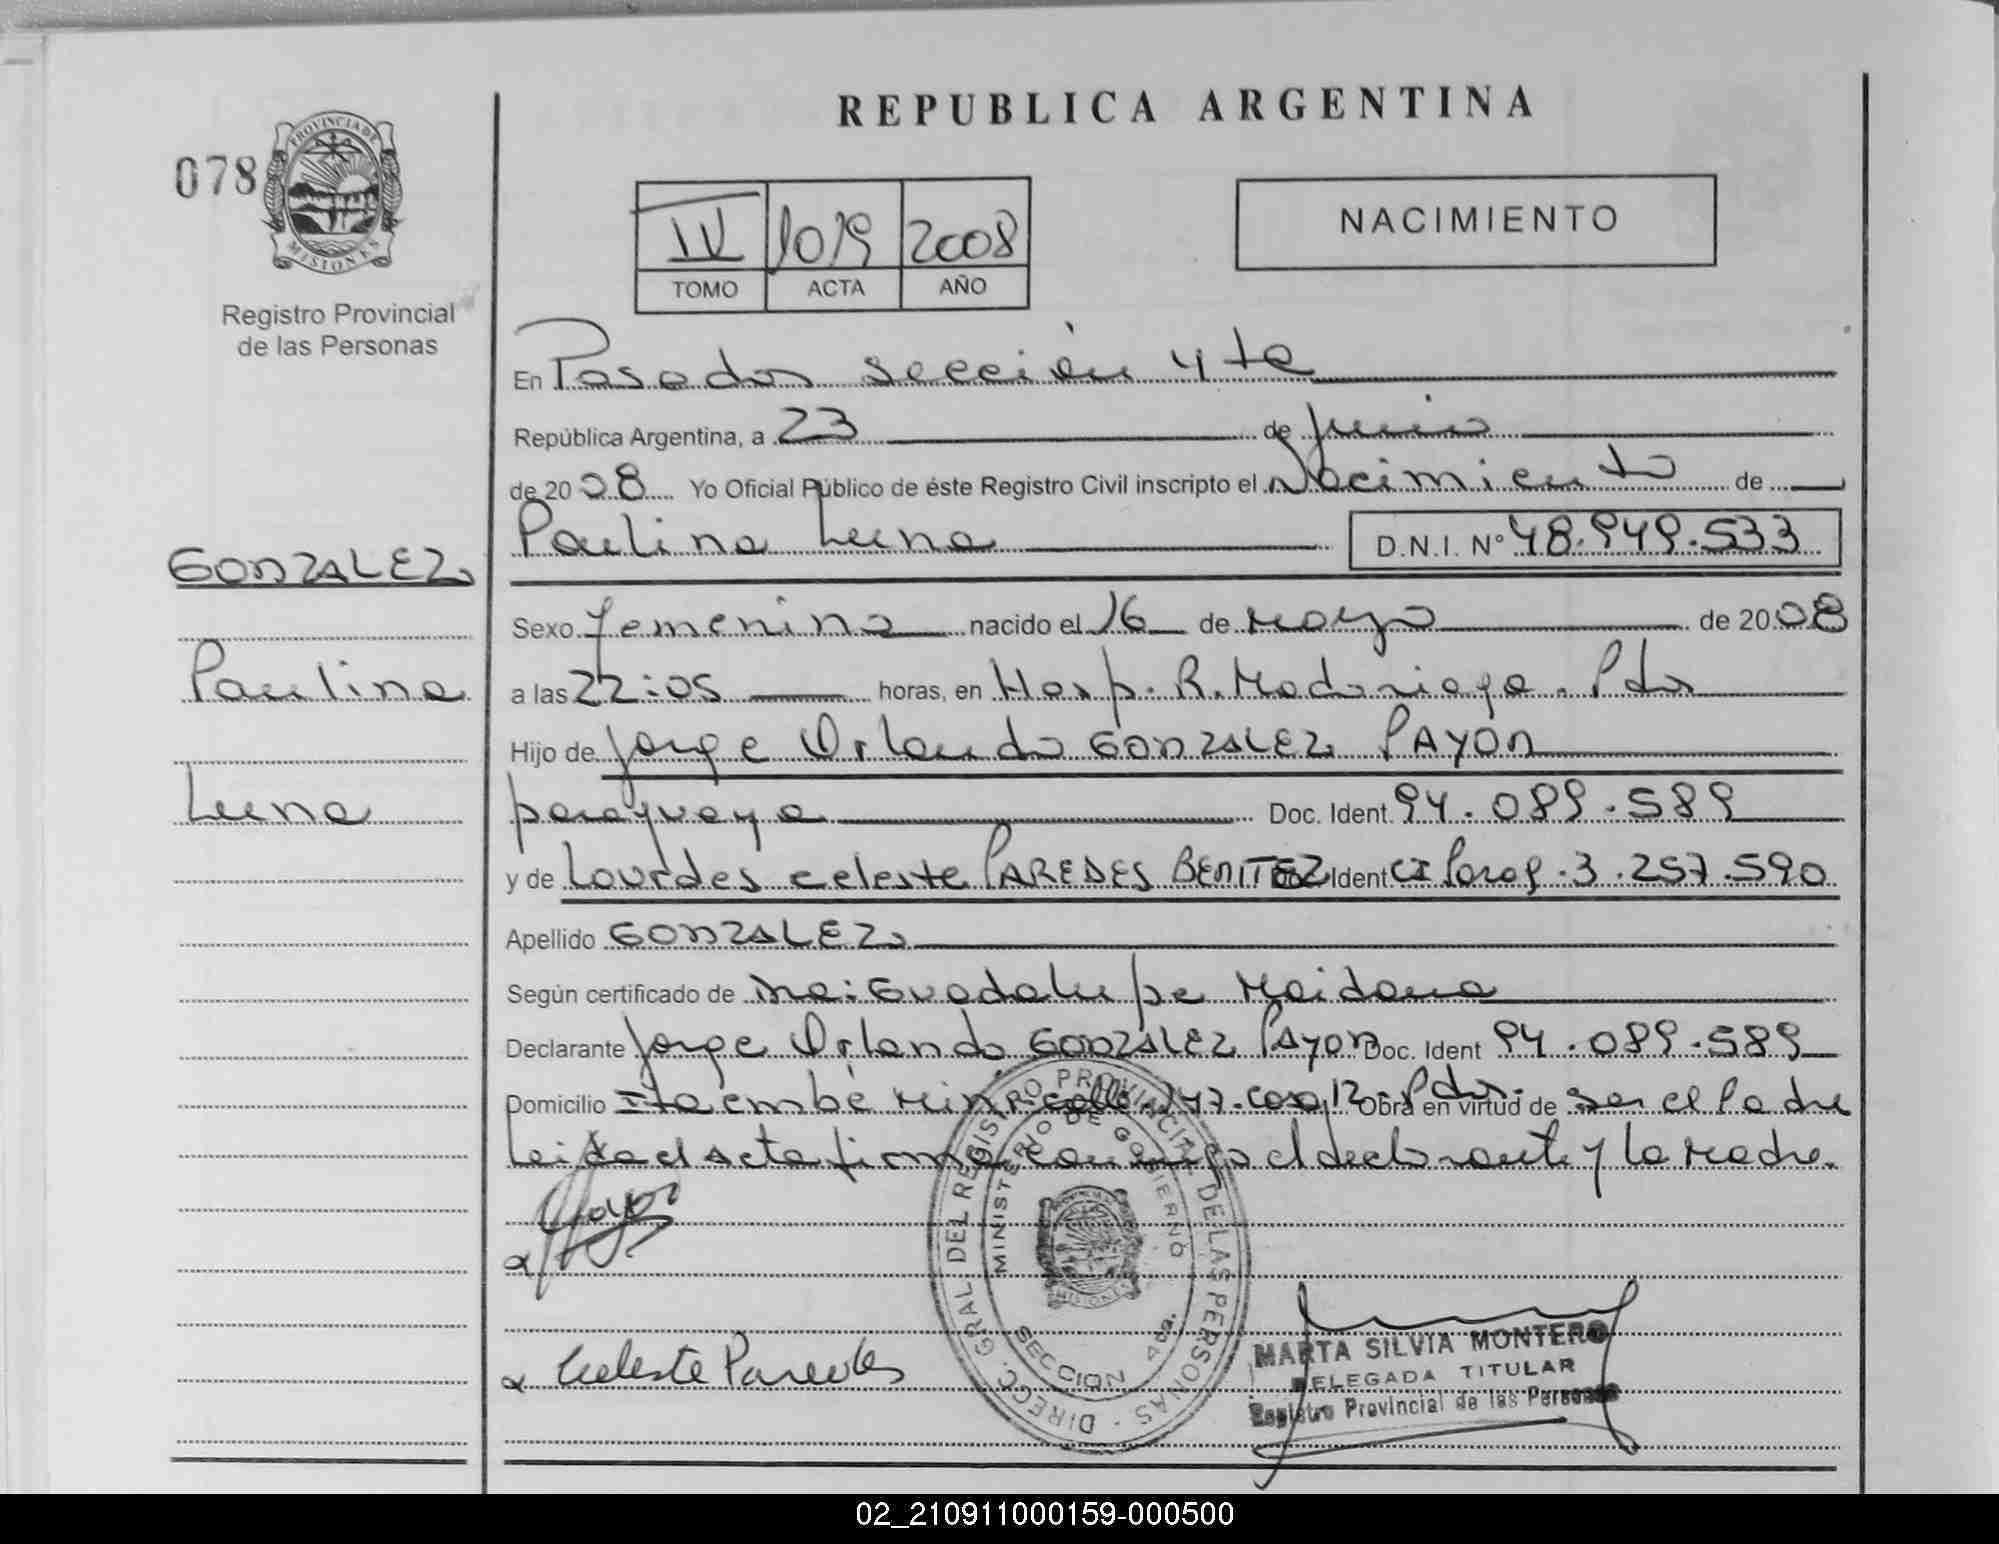 REPUBLICA ARGENTINA
078
PROVINCIA DE
MISIONES
Registro Provincial
de las Personas
IV 1019 2008
TOMO ACTA AÑO
NACIMIENTO
En Posadas sección 4ta
República Argentina, a 23 de Junio
de 2008 Yo Oficial Público de éste Registro Civil inscripto el Nacimiento de
Paulina Luna D.N.I. N° 48.949.533
GONZALEZ
Paulina
Luna
Sexo femenino nacido el 16 de Mayo de 2008
a las 22:05 horas, en Hosp. R. Madariaga. Pdas
Hijo de Jorge Orlando GONZALEZ PAYON
paraguaya Doc. Ident. 94.089.589
y de Lourdes Celeste PAREDES BENITEZ Doc. Ident CI Parag. 3.257.590
Apellido GONZALEZ
Según certificado de Dra: Guadalupe Maidana
Declarante Jorge Orlando GONZALEZ PAYON Doc. Ident 94.089.589
Domicilio Itaembé Mini calle 147. casa 12. Pdas. Obra en virtud de ser el Padre
Leída el acta firma conmigo el declarante y la Madre.
DIRECC. GRAL. DEL REGISTRO PROVINCIAL DE LAS PERSONAS
MINISTERIO DE GOBIERNO
MISIONES
SECCION 4ta.
Celeste Paredes
MARTA SILVIA MONTERO
DELEGADA TITULAR
Registro Provincial de las Personas
02_210911000159-000500